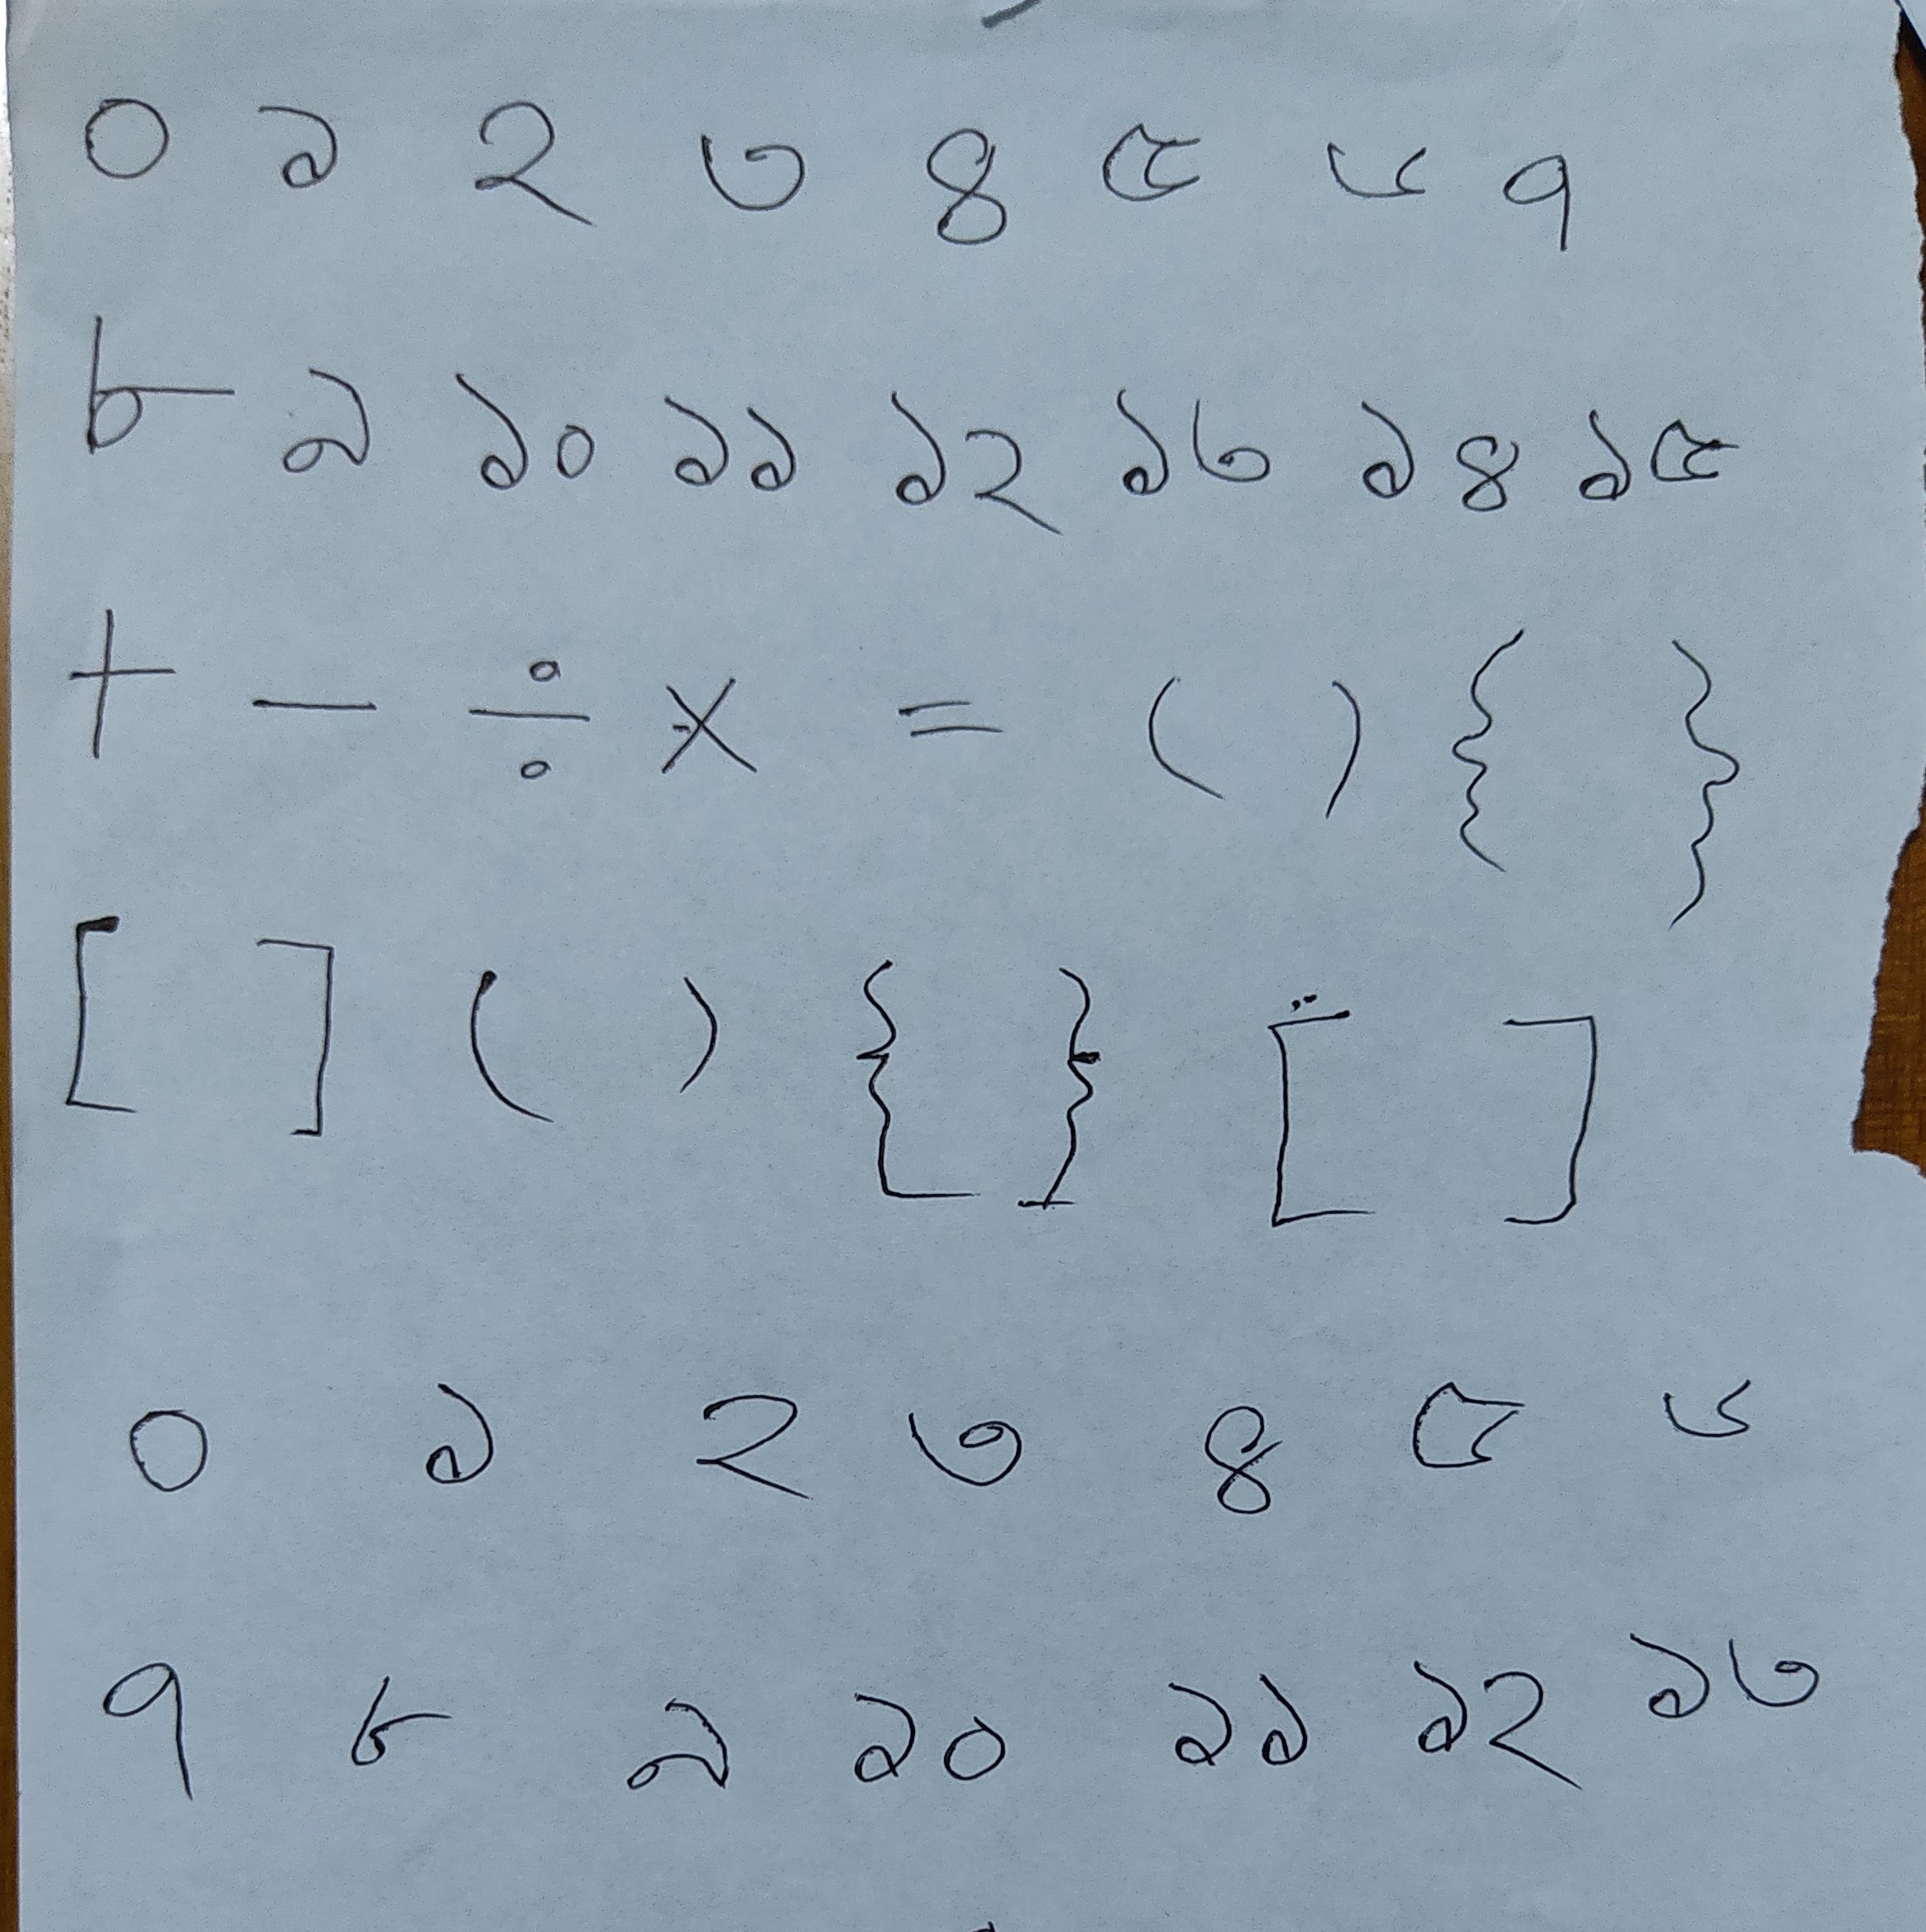 ০ ১ ২ ৩ ৪ ৫ ৬ ৭
৮ ৯ ১০ ১১ ১২ ১৩ ১৪ ১৫
+ − ÷ × = ( ) { }
[ ] ( ) { } [ ]
০ ১ ২ ৩ ৪ ৫ ৬
৭ ৮ ৯ ১০ ১১ ১২ ১৩